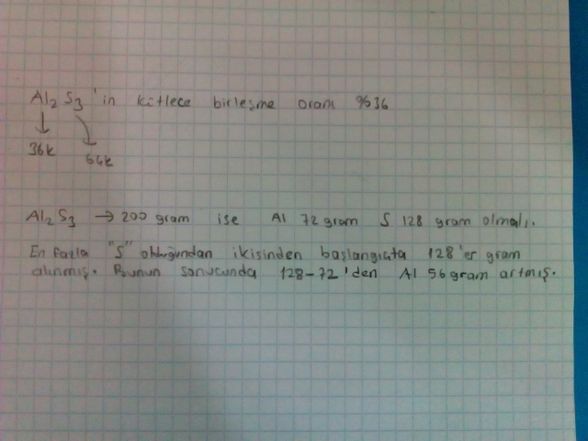 Al2 S3 'in kütlece birleşme oranı %36
36k
64k
Al2 S3 → 200 gram ise Al 72 gram S 128 gram olmalı.
En fazla "S" olduğundan ikisinden başlangıçta 128'er gram
alınmış. Bunun sonucunda 128-72'den Al 56 gram artmış.